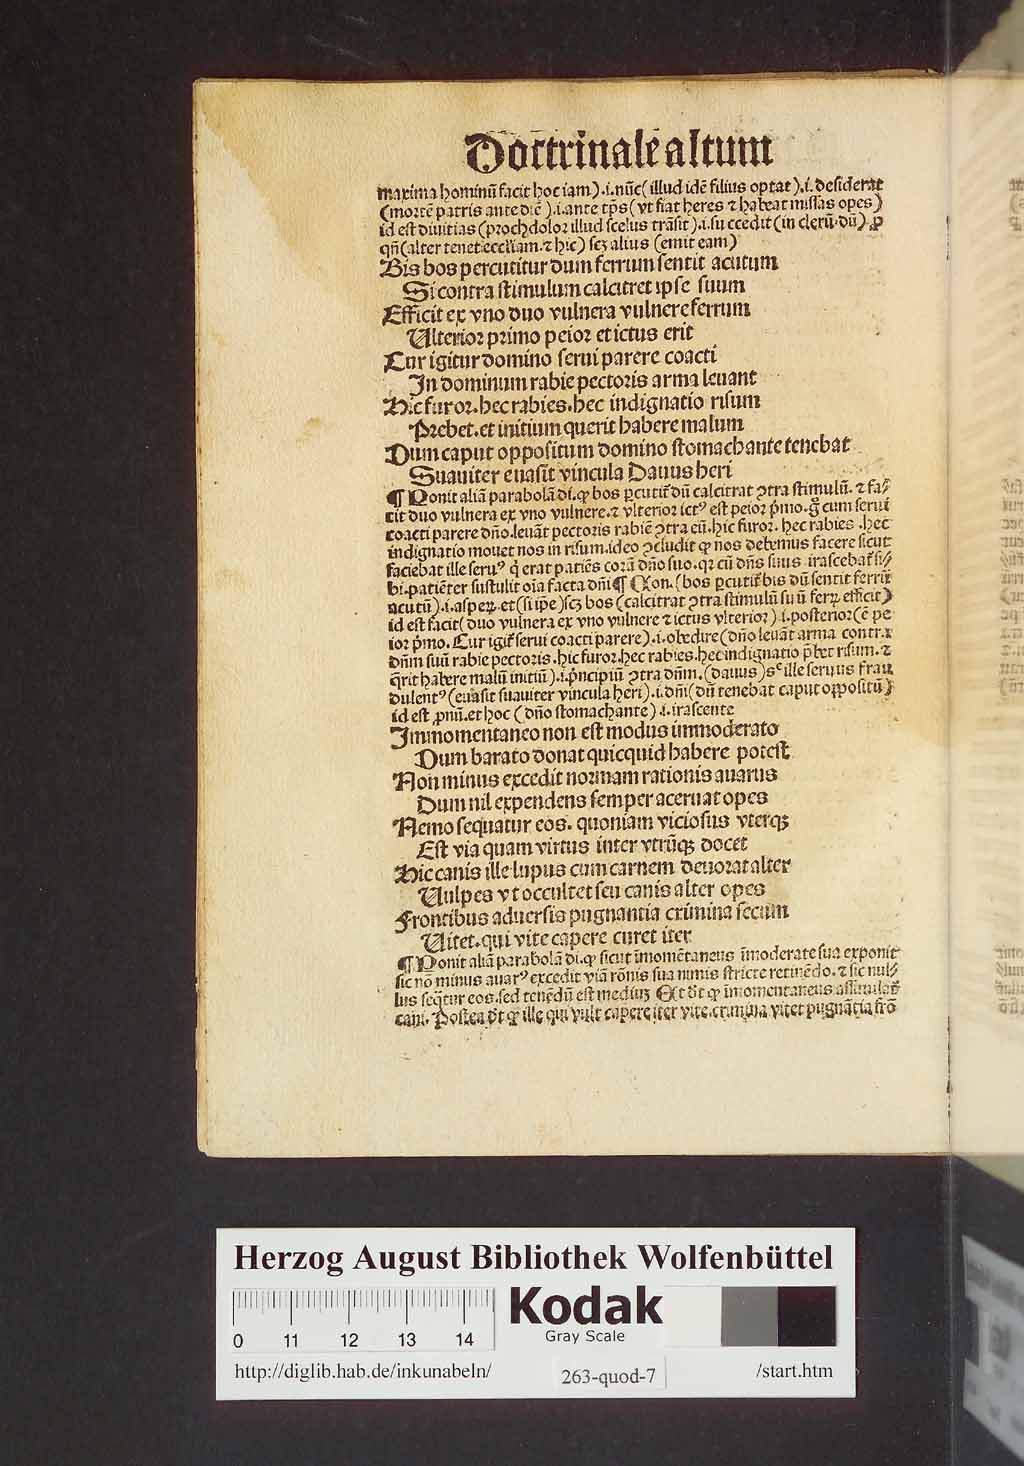 Doctrinale altum
maxima hominū facit hoc iam).i.nūc( illud idē filius optat).i.desiderat
(mortē patris ante diē).i.ante tp̄s( vt fiat heres ⁊ habeat missas opes)
id est diuitias (prochdolor illud scelus trāsit).i.succedit(in clerū.dū)
qn̄(alter tenet eccl̄iam.⁊ hic) scꝫ alius (emit eam)
Bis bos percutitur dum ferrum sentit acutum
Si contra stimulum calcitret ipse suum
Efficit ex vno duo vulnera vulnere ferrum
Ulterior primo peior et ictus erit
Cur igitur domino serui parere coacti
In dominum rabie pectoris arma leuant
Hic furor.hec rabies.hec indignatio risum
Prebet.et initium querit habere malum
Dum caput oppositum domino stomachante tenebat
Suauiter euasit vincula Dauus heri
¶ Ponit aliā parabolā di.ꝙ bos ꝑcutit᷑ dū calcitrat ꝯtra stimulū.⁊ fa⸗
cit duo vulnera ex vno vulnere.⁊ vlterior ictꝰ est peior p̄mo.gͦ cum serui
coacti parere dn̄o.leuāt pectoris rabiē ꝯtra eū.hic furor.hec rabies.hec
indignatio mouet nos in risum.ideo ꝯcludit ꝙ nos debemus facere sicut
faciebat ille seruꝰ q̇ erat patiēs corā dn̄o suo.qꝛ cū dn̄s suus irascebat᷑ si⸗
bi.patiēter sustulit oīa facta dn̄i¶ Con.(bos ꝑcutit᷑ bis dū sentit ferrū
acutū).i.asperꝝ.et(si ip̄e)scꝫ bos (calcitrat ꝯtra stimulū suū ferꝝ efficit)
id est facit( duo vulnera ex vno vulnere ⁊ ictus vlterior).i.posterior(ē pe
ior p̄mo. Cur igit᷑ serui coacti parere).i.obedire(dn̄o leuāt arma contra
dn̄m suū rabie pectoris.hic furor.hec rabies.hec indignatio p̄bet risum.⁊
q̄rit habere malū initiū).i.p̄ncipiū ꝯtra dn̄m.(dauus)sͨ ille seruus frau
dulentꝰ(euasit suauiter vincula heri).i.dn̄i(dū tenebat caput oppositū)
id est ꝓnū.et hoc (dn̄o stomachante).i.irascente
Immomentaneo non est modus immoderato
Dum barato donat quicquid habere potest
Non minus excedit normam rationis auarus
Dum nil expendens semper aceruat opes
Nemo sequatur eos. quoniam viciosus vterqꝫ
Est via quam virtus inter vtrūqꝫ docet
Hic canis ille lupus cum carnem deuorat alter
Uulpes vt occultet seu canis alter opes
Frontibus aduersis pugnantia crimina secum
Uitet.qui vite capere curet iter
¶ Ponit aliā parabolā di.ꝙ sicut īmomētaneus īmoderate sua exponit
sic nō minus auarꝰ excedit viā rōnis sua nimis stricte retinēdo.⁊ sic nul⸗
lus seq̄tur eos.sed tenēdū est mediuꝫ Et dt̄ ꝙ inmomentaneus assimilat᷑
cani. Postea dt̄ ꝙ ille qui vult capere iter vite.crimina vitet pugnātia frō
Herzog August Bibliothek Wolfenbüttel
0 11 12 13 14
Kodak
Gray Scale
http://diglib.hab.de/inkunabeln/ 263-quod-7 /start.htm